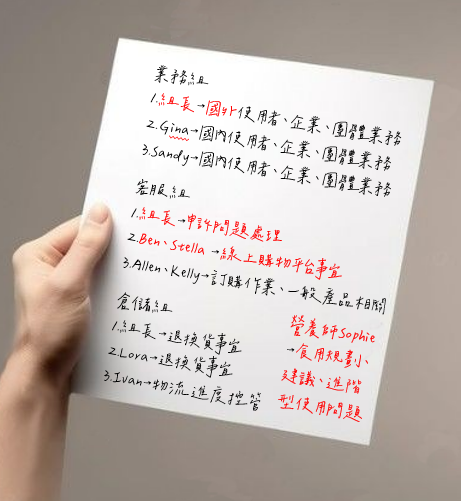 業務組
1.組長→國外使用者、企業、團體業務
2.Gina→國內使用者、企業、團體業務
3.Sandy→國內使用者、企業、團體業務
客服組
1.組長→申訴問題處理
2.Ben、Stella→線上購物平台事宜
3.Allen、Kelly→訂購作業、一般產品相關
倉儲組
1.組長→退換貨事宜
2.Lora→退換貨事宜
3.Ivan→物流進度控管
營養師Sophie
→食用規劃小
建議、進階
型使用問題